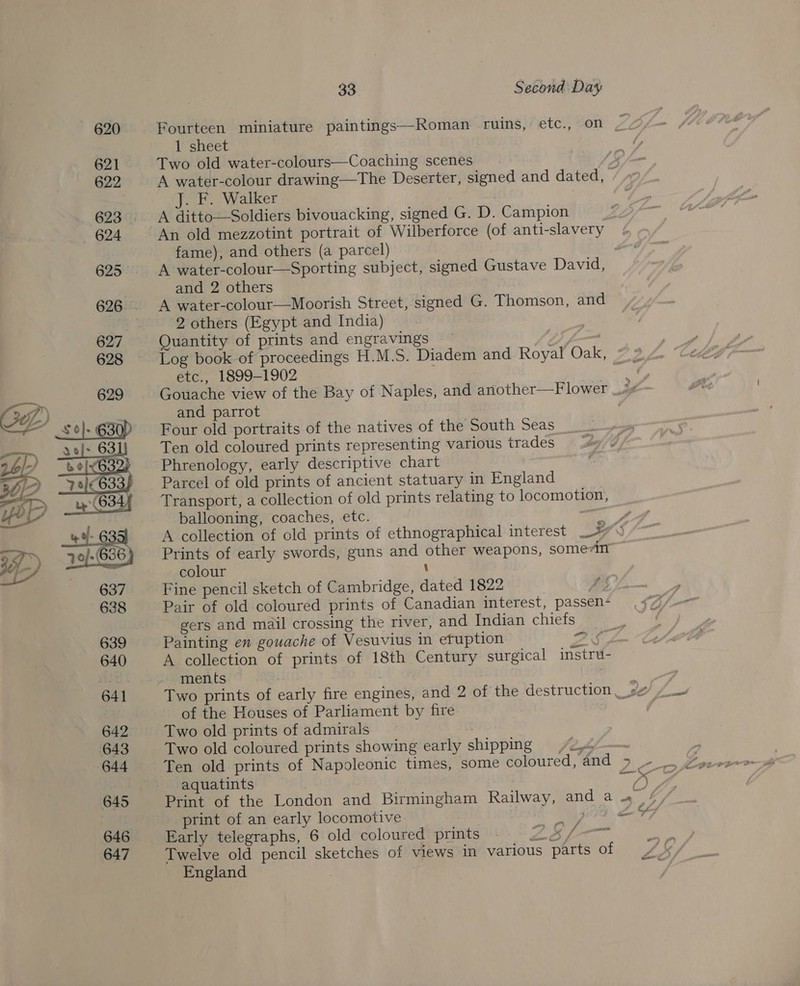 33 Second Day
620 Fourteen miniature paintings—Roman ruins, etc., on
1 sheet
621 Two old water-colours—Coaching scenes
622 A water-colour drawing—The Deserter, signed and dated,
J. F. Walker
623 A ditto—Soldiers bivouacking, signed G. D. Campion
624 An old mezzotint portrait of Wilberforce (of anti-slavery
fame), and others (a parcel)
625 A water-colour—Sporting subject, signed Gustave David,
and 2 others
626 A water-colour—Moorish Street, signed G. Thomson, and
2 others (Egypt and India)
627 Quantity of prints and engravings
628 Log book of proceedings H.M.S. Diadem and Royal Oak,
etc., 1899-1902
629 Gouache view of the Bay of Naples, and another—Flower
and parrot
630 Four old portraits of the natives of the South Seas
631 Ten old coloured prints representing various trades
632 Phrenology, early descriptive chart
633 Parcel of old prints of ancient statuary in England
634 Transport, a collection of old prints relating to locomotion,
ballooning, coaches, etc.
635 A collection of old prints of ethnographical interest
636 Prints of early swords, guns and other weapons, some in
colour
637 Fine pencil sketch of Cambridge, dated 1822
638 Pair of old coloured prints of Canadian interest, passen-
gers and mail crossing the river, and Indian chiefs
639 Painting en gouache of Vesuvius in eruption
640 A collection of prints of 18th Century surgical instru-
ments
641 Two prints of early fire engines, and 2 of the destruction
of the Houses of Parliament by fire
642 Two old prints of admirals
643 Two old coloured prints showing early shipping
644 Ten old prints of Napoleonic times, some coloured, and
aquatints
645 Print of the London and Birmingham Railway, and a
print of an early locomotive
646 Early telegraphs, 6 old coloured prints
647 Twelve old pencil sketches of views in various parts of
England